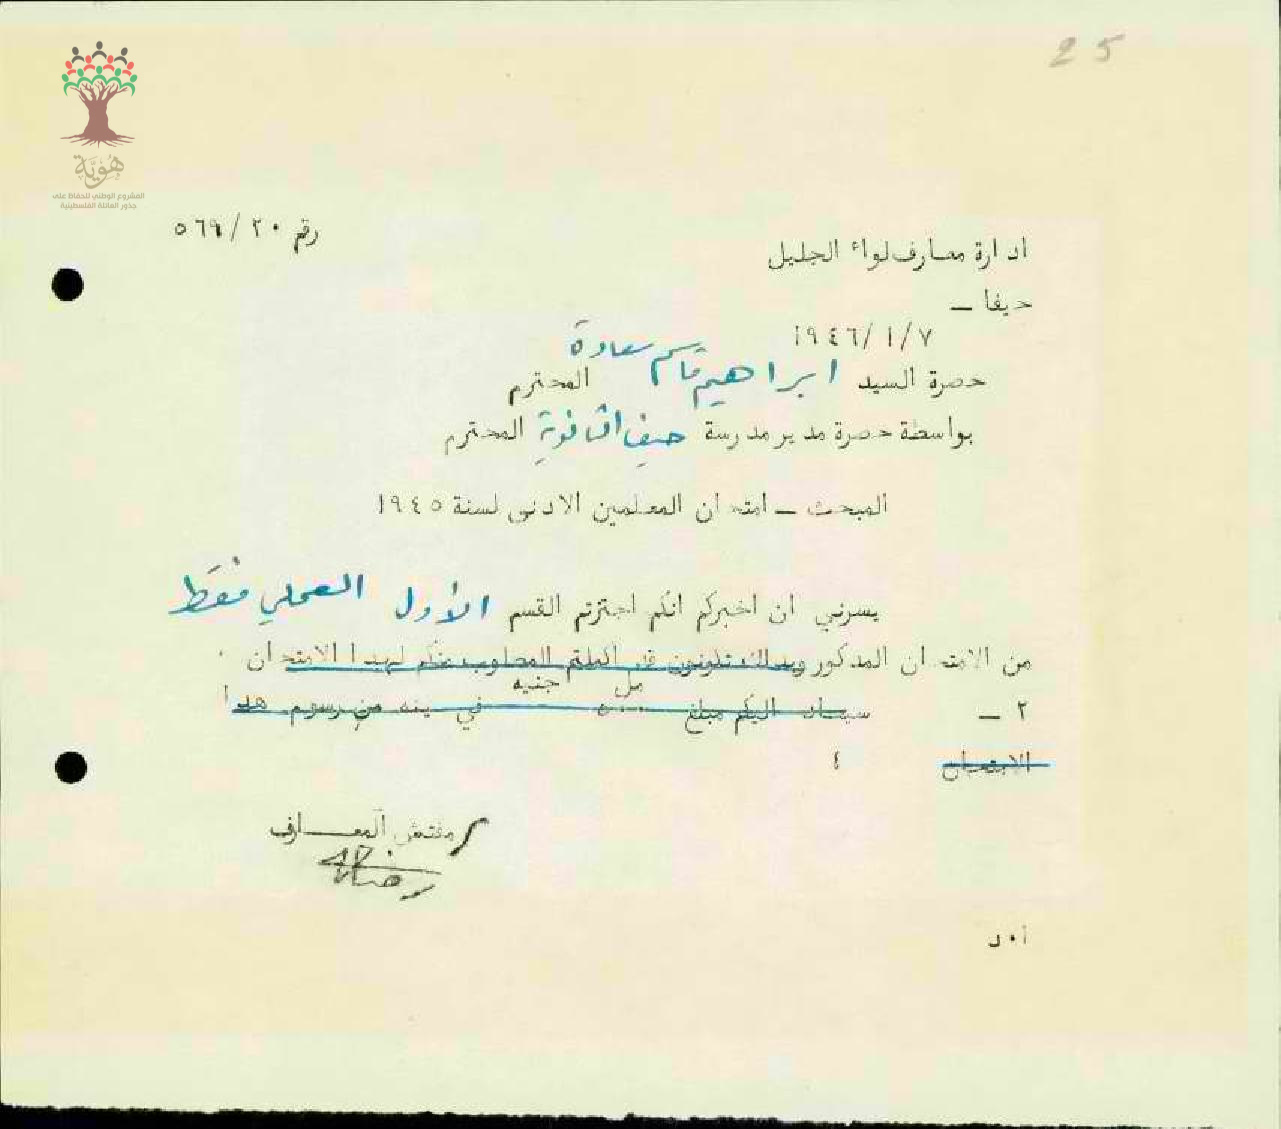 25
هُوِيَّة
المشروع الوطني للحفاظ على
جذور العائلة الفلسطينية
رقم ٥٦٩/٢٠
ادارة معارف لواء الجليل
حيفا –
١٩٤٦/١/٧
حضرة السيد ابراهيم قاسم سعادة المحترم
بواسطة حضرة مدير مدرسة حيفا الثانوية المحترم
المبحث – امتحان المعلمين الادنى لسنة ١٩٤٥
يسرني ان اخبركم انكم اجتزتم القسم الأول العملي فقط
من الامتحان المذكور وبذلك تكونون قد المطلوب منكم لهذا الامتحان .
٢ – سيعاد اليكم مبلغ مل جنيه في من رسوم هذا
الامتحان
مفتش المعارف
أ٠د